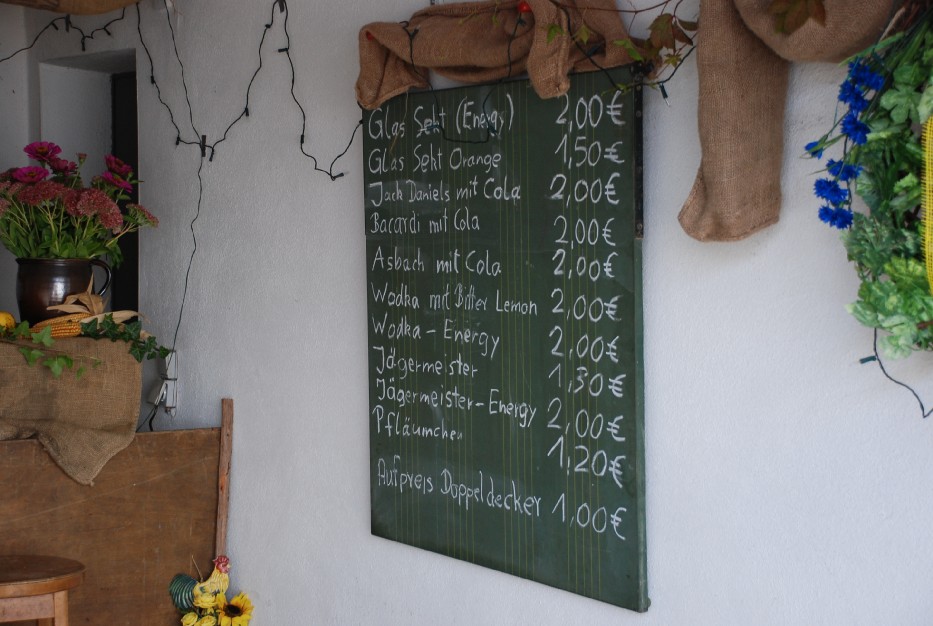 Glas Seht (Energy) 2,00€
Glas Seht Orange 1,50€
Jack Daniels mit Cola 2,00€
Bacardi mit Cola 2,00€
Asbach mit Cola 2,00€
Wodka mit Bitter Lemon 2,00€
Wodka - Energy 2,00€
Jägermeister 1,30€
Jägermeister - Energy 2,00€
Pfläumchen 1,20€
Aufpreis Doppeldecker 1,00€